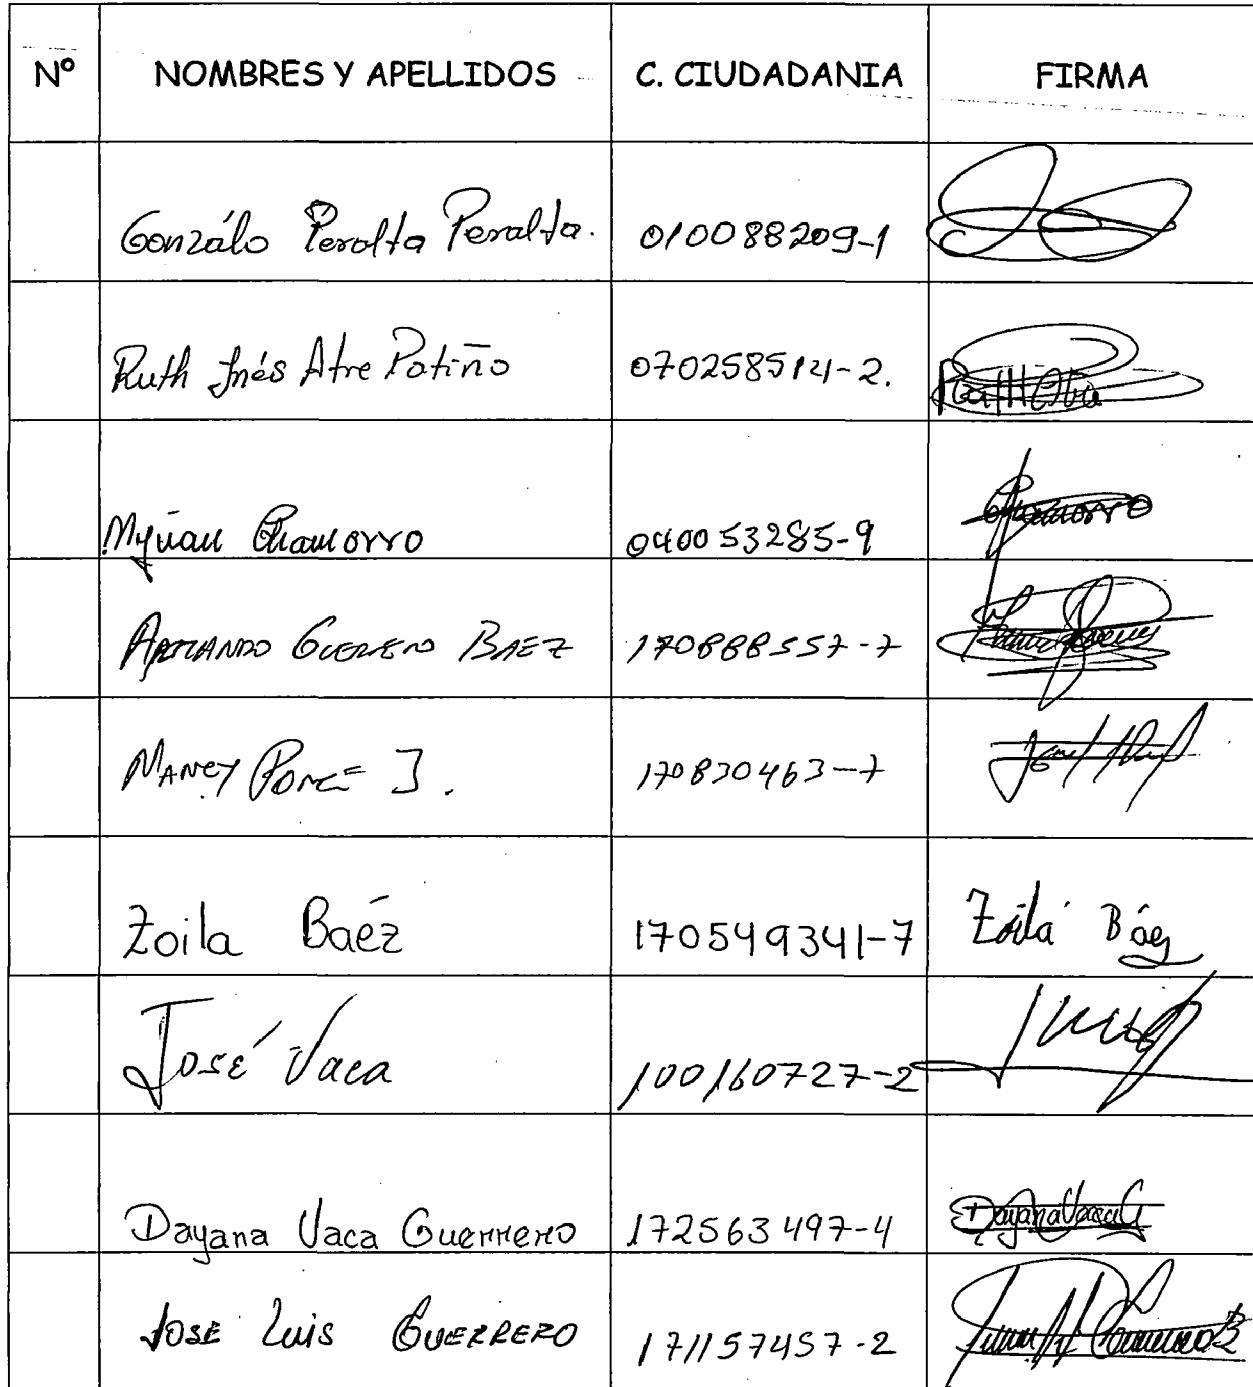 Nº NOMBRES Y APELLIDOS C. CIUDADANIA FIRMA
Gonzálo Peralta Peralta. 010088209-1
Ruth Inés Atre Patiño 070258514-2.
Myrian Chamorro 040053285-9 Chamorro
ARMANDO GUERRERO BAEZ 170888557-7
NANCY PONCE J. 170830463-7
Zoila Baéz 170549341-7 Zoila Báez
José Vaca 100160727-2
Dayana Vaca Guerrero 172563497-4 Dayana Vaca G
JOSE Luis GUERRERO 171157457-2